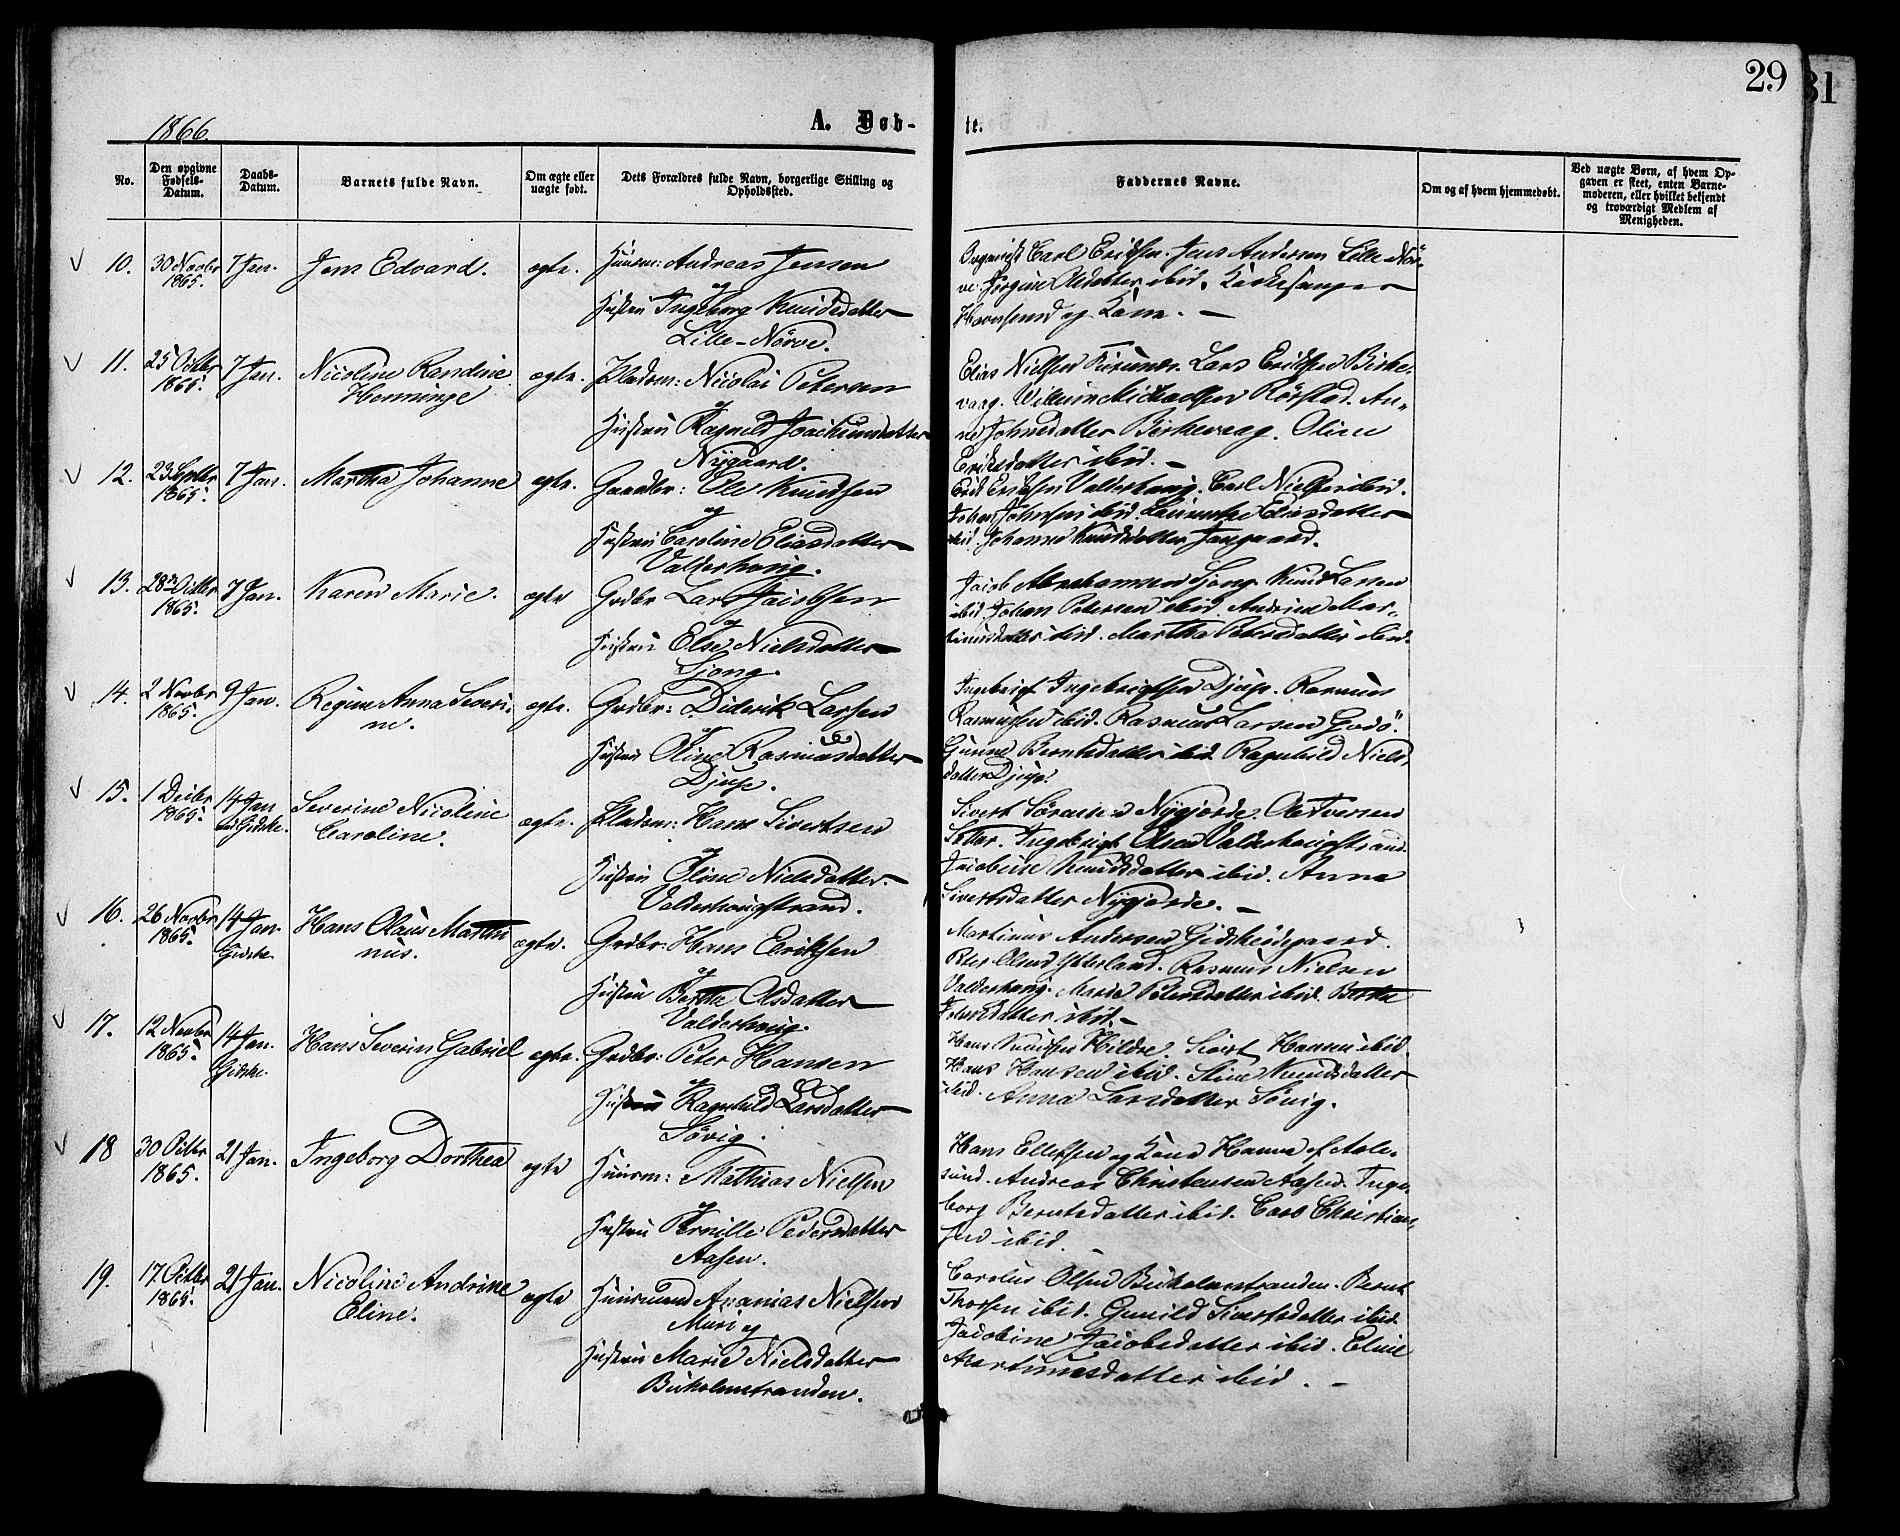 29
31
1866.
A. Døb-
te.
No.
Den opgivne Fødsels-Datum.
Daabs-Datum.
Barnets fulde Navn.
Om ægte eller uægte født.
Dets Forældres fulde Navn, borgerlige Stilling og Opholdssted.
Faddernes Navne.
Om og af hvem hjemmedøbt.
Ved uægte Børn, af hvem Opgaven er skeet, enten Barnemoderen, eller hvilket bekjendt og troværdigt Medlem af Menigheden.
10. 30 Novbr 1865. 7 Jan. Jens Edvard. ægte. Huusm: Andreas Jensen
og
Hustru Ingeborg Knudsdatter
Lille-Nörve.
Organist Carl Eriksen. Jens Andersen Lille-Nör-
ve. Jörgine Olsdatter ibid. Kirkesanger
og Kone. —
11. 25 Octbr 1865. 7 Jan. Nicoline Randine
Henninge ægte. Pladsm: Nicolai Petersen
og
Hustru Ragnild Joachimsdatter
Nygaard.
Elias Nielsen. Lars Eriksen Birke-
vaag. Willum Mickaelsen Rörstad. An-
ne Johnsdatter Birkevaag. Oline
Eriksdatter ibid. —
12. 23 Septbr 1865. 7 Jan. Martha Johanne ægte. Gaardbr: Ole Knudsen
og
Hustru Caroline Eliasdatter
Valderhoug.
Erik Eriksen Valderhoug. Carl Nielsen ibid.
Johan Johnsen ibid. Laurentze Eliasdatter
ibid. Johanne Knudsdatter
13. 28de Octbr 1865. 7 Jan. Karen Marie. ægte Grdbr Lars Jacobsen
og
Hustru Else Nielsdatter
Sjong.
Jacob Abrahamsen Sjong. Knud Larsen
ibid. Johan Petersen ibid. Andrine Mar-
tinusdatter ibid. Martha Petersdatter ibid.
14. 2 Novbr 1865. 9 Jan. Regine Anna Severi-
ne. ægte. Grdbr: Diderik Larsen
og
Hustru Oline Rasmusdatter
Djup.
Ingebrigt Ingebrigtsen Djup. Rasmus
Rasmussen ibid. Rasmus Larsen Godö.
Gurine Berntsdatter ibid. Ragnhild Niels-
datter Djup.
15. 1 Decbr 1865. 14 Jan ved Gidske. Severine Nicoline
Caroline. ægte. Pladsm: Hans Sivertsen
og
Hustru Oline Nielsdatter.
Valderhougstrand.
Sivert Sörensen Nygjorde. Ole Iversen
Sætter. Ingebrigt Olsen Valderhougstrand.
Jacobine Knudsdatter ibid. Anna
Sivertsdatter Nygjorde. —
16. 26 Novbr 1865. 14 Jan. Gidske. Hans Olaus Marthi
nus. ægte. Grdbr: Hans Eriksen
og
Hustru Bertha Olsdatter
Valderhoug.
Martinus Andersen Gidskeödegaard.
Peter Olsen Ytterland. Rasmus Nielsen
Valderhoug. Marie Petersdatter ibid. Berthe
ibid. —
17. 12 Novbr 1865. 14 Jan. Gidske. Hans Severin Gabriel ægte. Grdbr: Peter Hansen
og
Hustru Ragnhild Larsdatter
Sövig.
Hans Knudsen Hildre. Sivert Hansen ibid.
Hans Hansen ibid. Stine Knudsdatter
ibid. Anna Larsdatter Sövig.
18 30 Octbr 1865. 21 Jan. Ingeborg Dorthea ægte Huusm: Mathias Nielsen
og
Hustru Pernille Pedersdatter
Aasen.
Hans Ellefsen og Kone Hanna af Aale-
sund. Andreas Christensen Aasen. Inge-
borg Berntsdatter ibid. Christian-
sen ibid.
19. 17 Octbr 1865. 21 Jan. Nicoline Andrine
Eline. ægte Huusmand Ananias Nielsen
Muri og
Hustru Marie Nielsdatter
Buholmstranden.
Carolus Olsen Buholmstranden. Bernt
Thorsen ibid. Gunild Sivertsdatter ibid.
Jacobine Jacobsdatter ibid. Eline
Martinusdatter ibid. —